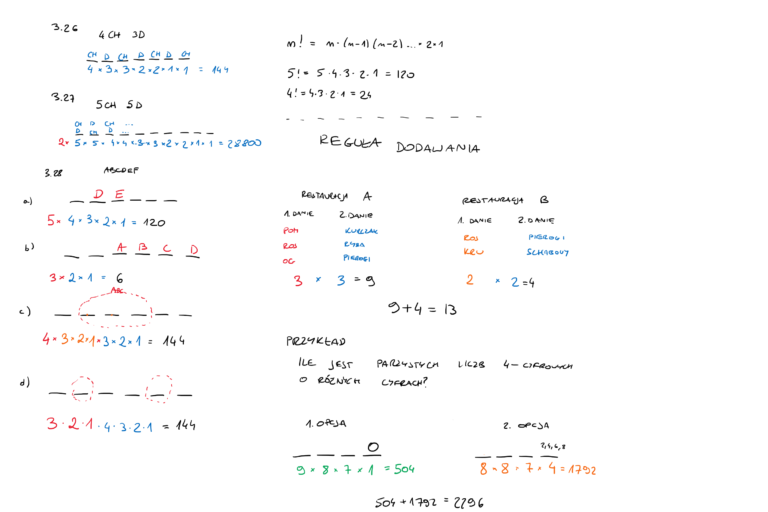 3.26 4CH 3D
CH D CH D CH D CH
4 × 3 × 3 × 2 × 2 × 1 × 1 = 144
3.27 5CH 5D
CH D CH ...
D CH D ...
2 × 5 × 5 × 4 × 4 × 3 × 3 × 2 × 2 × 1 × 1 = 28800
3.28 ABCDEF
a) D E
5 × 4 × 3 × 2 × 1 = 120
b) A B C D
3 × 2 × 1 = 6
ABC
c)
4 × 3 × 2 × 1 × 3 × 2 × 1 = 144
d)
3 · 2 · 1 · 4 · 3 · 2 · 1 = 144
n! = n · (n-1) (n-2) ... · 2 · 1
5! = 5 · 4 · 3 · 2 · 1 = 120
4! = 4 · 3 · 2 · 1 = 24
REGUŁA DODAWANIA
RESTAURACJA A
1. DANIE 2. DANIE
POM KURCZAK
ROS RYBA
OG PIEROGI
3 × 3 = 9
RESTAURACJA B
1. DANIE 2. DANIE
ROS PIEROGI
KRU SCHABOWY
2 × 2 = 4
9 + 4 = 13
PRZYKŁAD
ILE JEST PARZYSTYCH LICZB 4-CYFROWYCH
O RÓŻNYCH CYFRACH?
1. OPCJA
0
9 × 8 × 7 × 1 = 504
2. OPCJA
2, 4, 6, 8
8 × 8 × 7 × 4 = 1792
504 + 1792 = 2296